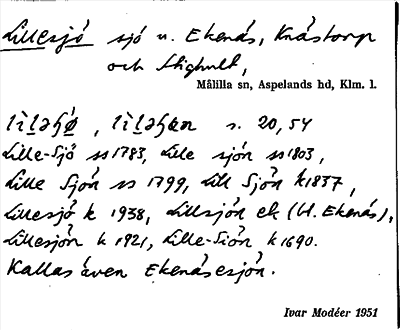 Lillesjö sjö n. Ekenäs, Knästorp
och Stighult,
Målilla sn, Aspelands hd, Klm. l.
lìləʃö̀, lìləʃøn s. 20, 54
Lille-Sjö ss 1783, Lille sjön ss 1803,
Lille Sjön ss 1799, Lill Sjön k 1837,
Lillesjö k 1938, Lillsjön ek (bl. Ekenäs),
Lillesjön k 1921, Lille-Siön k 1690.
Kallas även Ekenäsesjön.
Ivar Modéer 1951